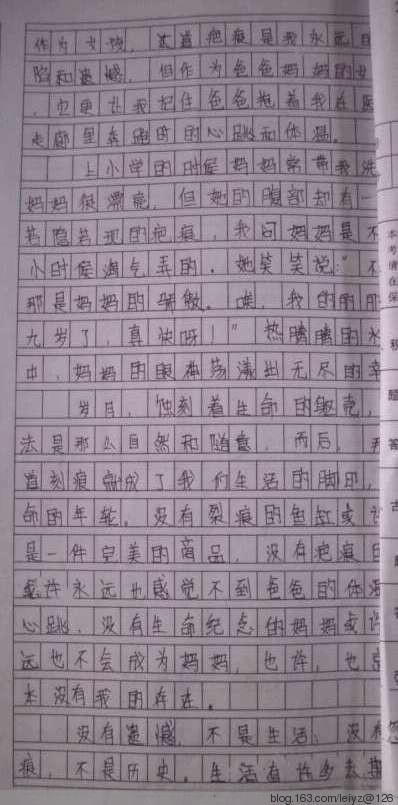 作为女孩，这道疤痕是我永远的
陷和遗憾，但作为爸爸妈妈的女
，也更让我记住爸爸抱着我在医
走廊里奔跑时的心跳和体温。
上小学的时候妈妈常带我洗
妈妈很漂亮，但她的腹部却有一
若隐若现的疤痕，我问妈妈是不
小时候淘气弄的。她笑笑说："不
那是妈妈的骄傲。唉，我的
九岁了，真快呀！"热腾腾的水
中，妈妈的眼神荡漾出无尽的幸
岁月，蚀刻着生命的躯壳，
法是那么自然和随意，而后，
道刻痕就成了我们生活的脚印，
命的年轮。没有裂痕的鱼缸或许
是一件完美的商品，没有疤痕的
或许永远也感觉不到爸爸的体温
心跳，没有生命纪念的妈妈或许
远也不会成为妈妈，也许，也
本没有我的存在。
没有遗憾，不是生活；没有
痕，不是历史。生活有许多
blog.163.com/leiyz@126